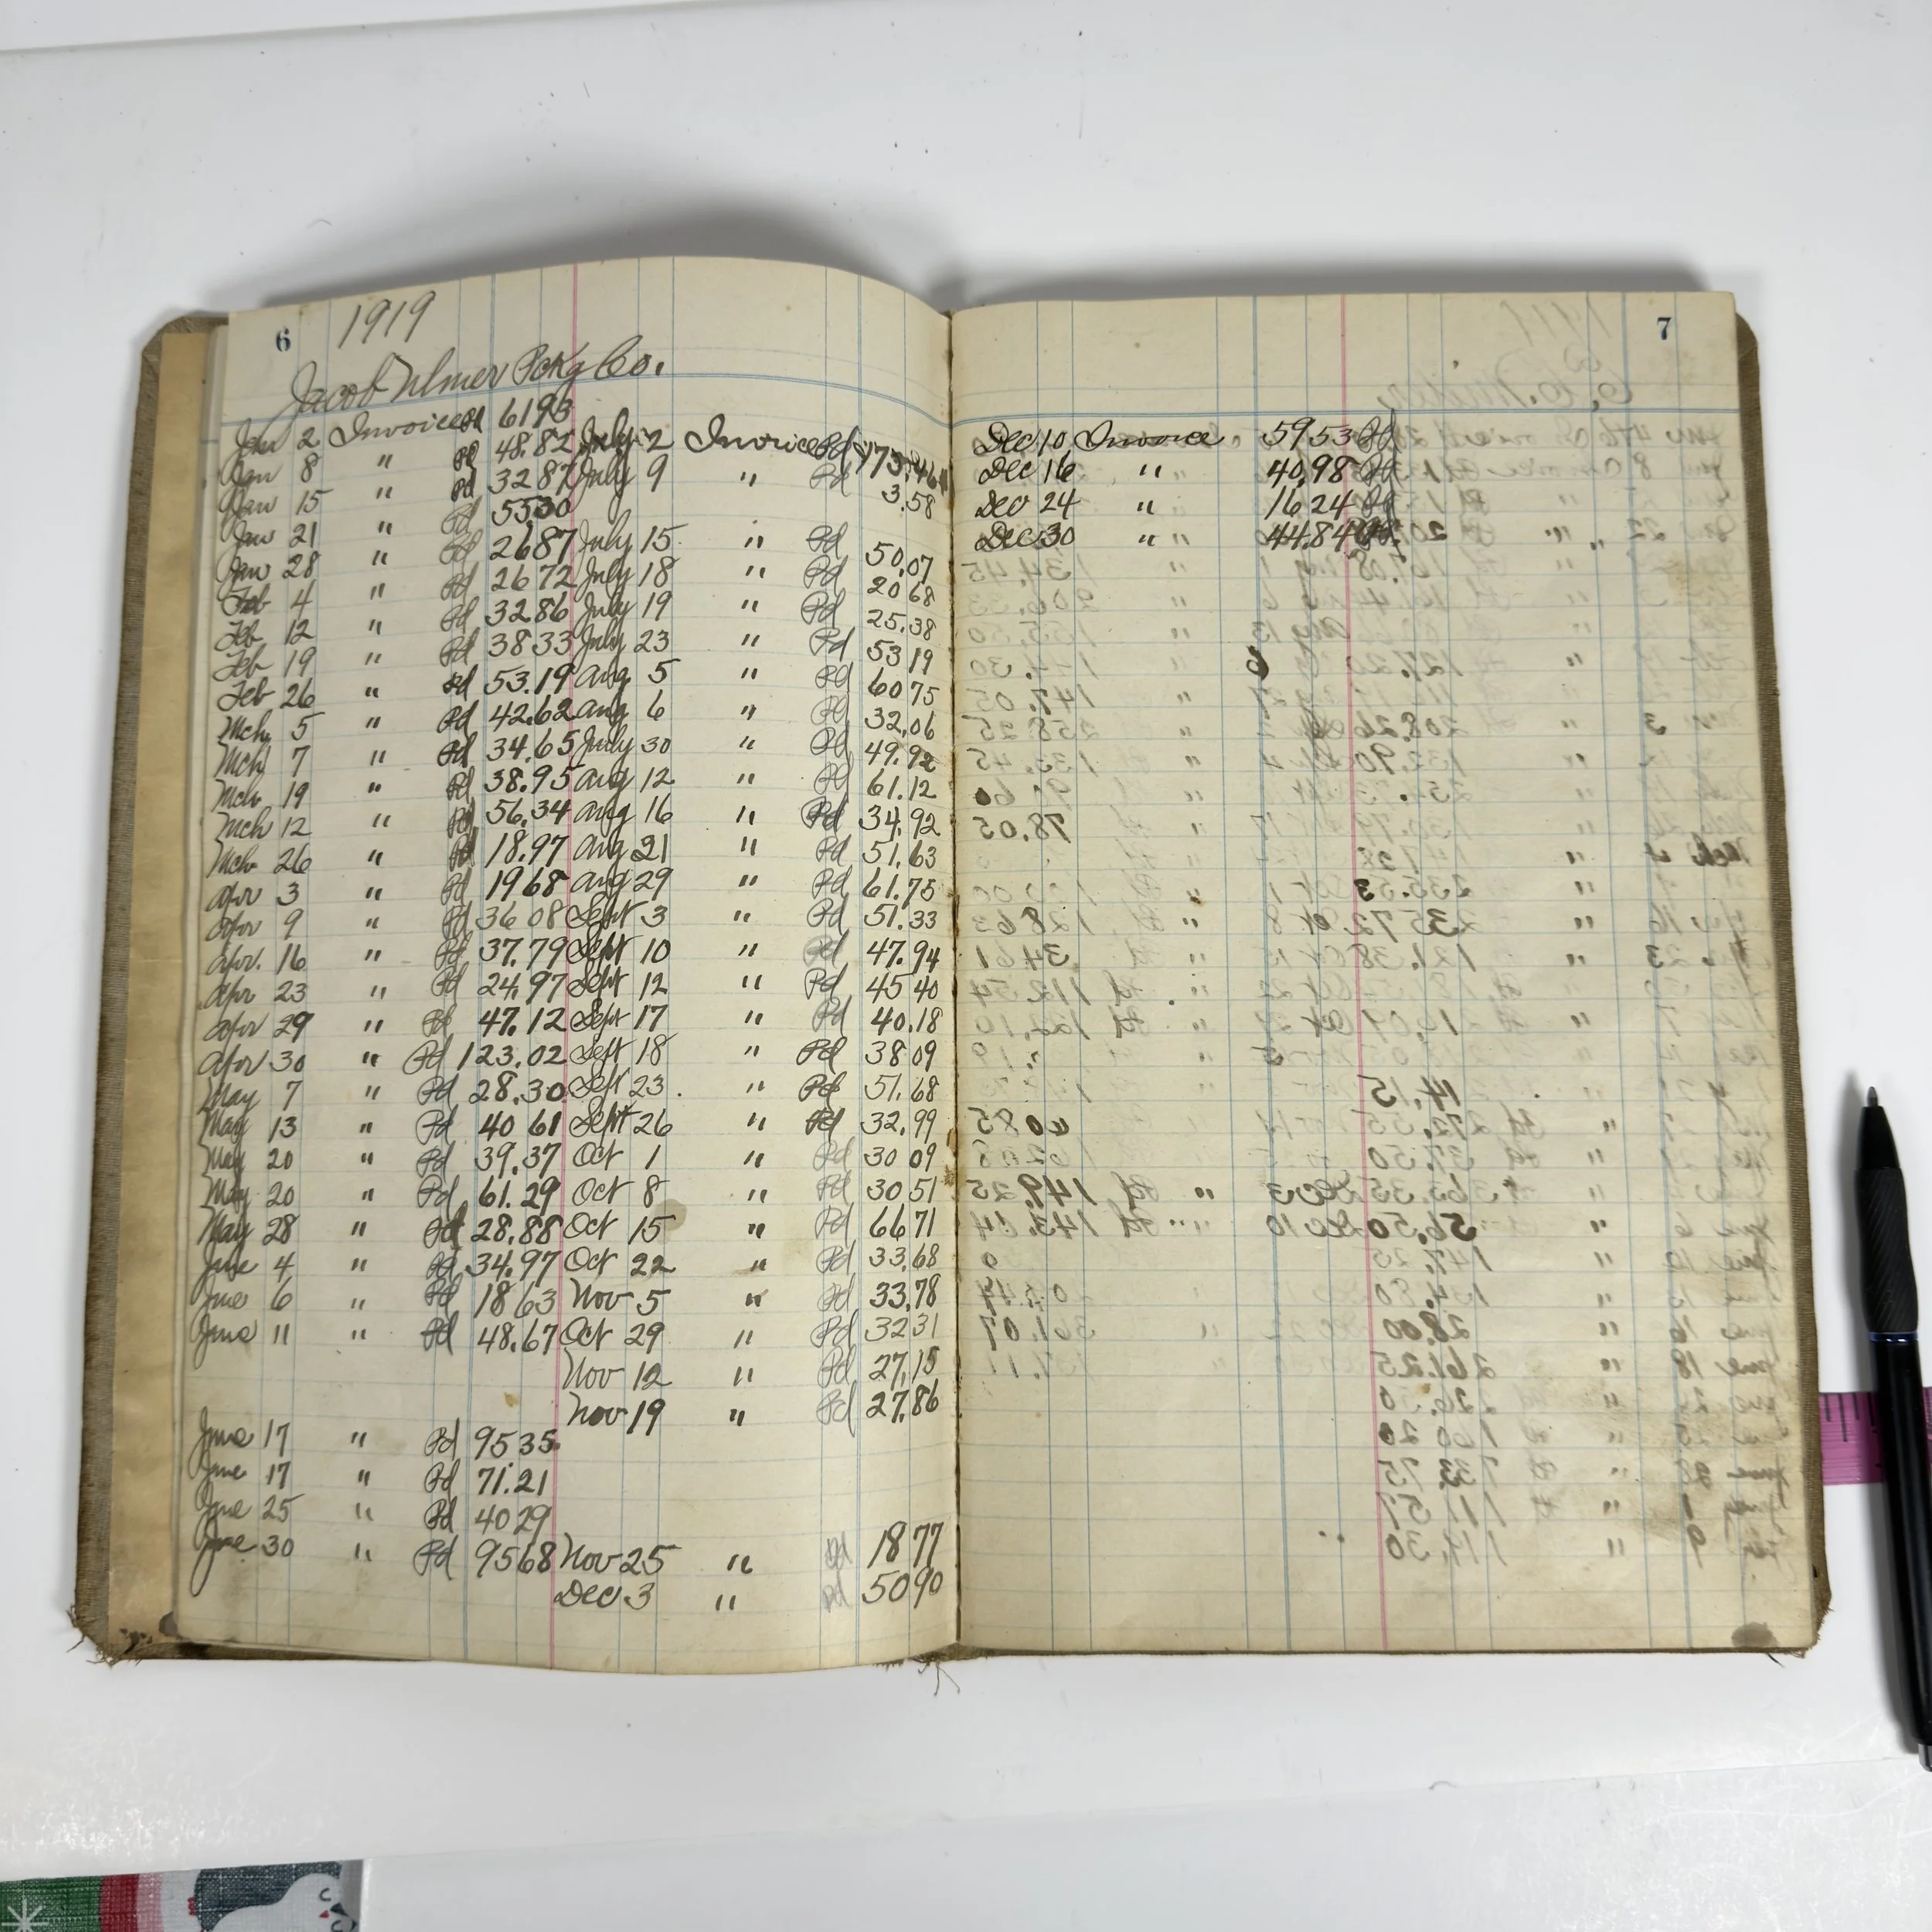 6
1919
Jacob Ulmer Pckg Co.
Jan 2 Invoice Pd 6193
Jan 8 " Pd 48.82
Jan 15 " Pd 3287
Jan 21 " Pd 5530
Jan 28 " Pd 2687
Feb 4 " Pd 2672
Feb 12 " Pd 3286
Feb 19 " Pd 3833
Feb 26 " Pd 53.19
Mch 5 " Pd 42.62
Mch 7 " Pd 34.65
Mch 19 " Pd 38.95
Mch 12 " Pd 56.34
Mch 26 " Pd 18.97
Apr 3 " Pd 1968
Apr 9 " Pd 36 08
Apr. 16 " Pd 37.79
Apr 23 " Pd 24.97
Apr 29 " Pd 47.12
Apr 30 " Pd 123.02
May 7 " Pd 28.30
May 13 " Pd 40 61
May 20 " Pd 39.37
May 20 " Pd 61.29
May 28 " Pd 28.88
June 4 " Pd 34.97
June 6 " Pd 18 63
June 11 " Pd 48.67
June 17 " Pd 95 35
June 17 " Pd 71.21
June 25 " Pd 40 29
June 30 " Pd 9568
July 2 Invoice Pd 73.46
July 9 " Pd 3.58
July 15 " Pd 50.07
July 18 " Pd 20 68
July 19 " Pd 25.38
July 23 " Pd 53 19
Aug 5 " Pd 60 75
Aug 6 " Pd 32.06
July 30 " Pd 49.92
Aug 12 " Pd 61.12
Aug 16 " Pd 34.92
Aug 21 " Pd 51.63
Aug 29 " Pd 61.75
Sept 3 " Pd 51.33
Sept 10 " Pd 47.94
Sept 12 " Pd 45 40
Sept 17 " Pd 40.18
Sept 18 " Pd 38 09
Sept 23 " Pd 51.68
Sept 26 " Pd 32.99
Oct 1 " Pd 30 09
Oct 8 " Pd 30 51
Oct 15 " Pd 66 71
Oct 22 " Pd 33.68
Nov 5 " Pd 33.78
Oct 29 " Pd 32 31
Nov 12 " Pd 27.15
Nov 19 " Pd 27.86
Nov 25 " Pd 18 77
Dec 3 " Pd 50 90
7
Dec 10 Invoice 59 53 Pd
Dec 16 " 40.98 Pd
Dec 24 " 16 24 Pd
Dec 30 " 44.84 Pd